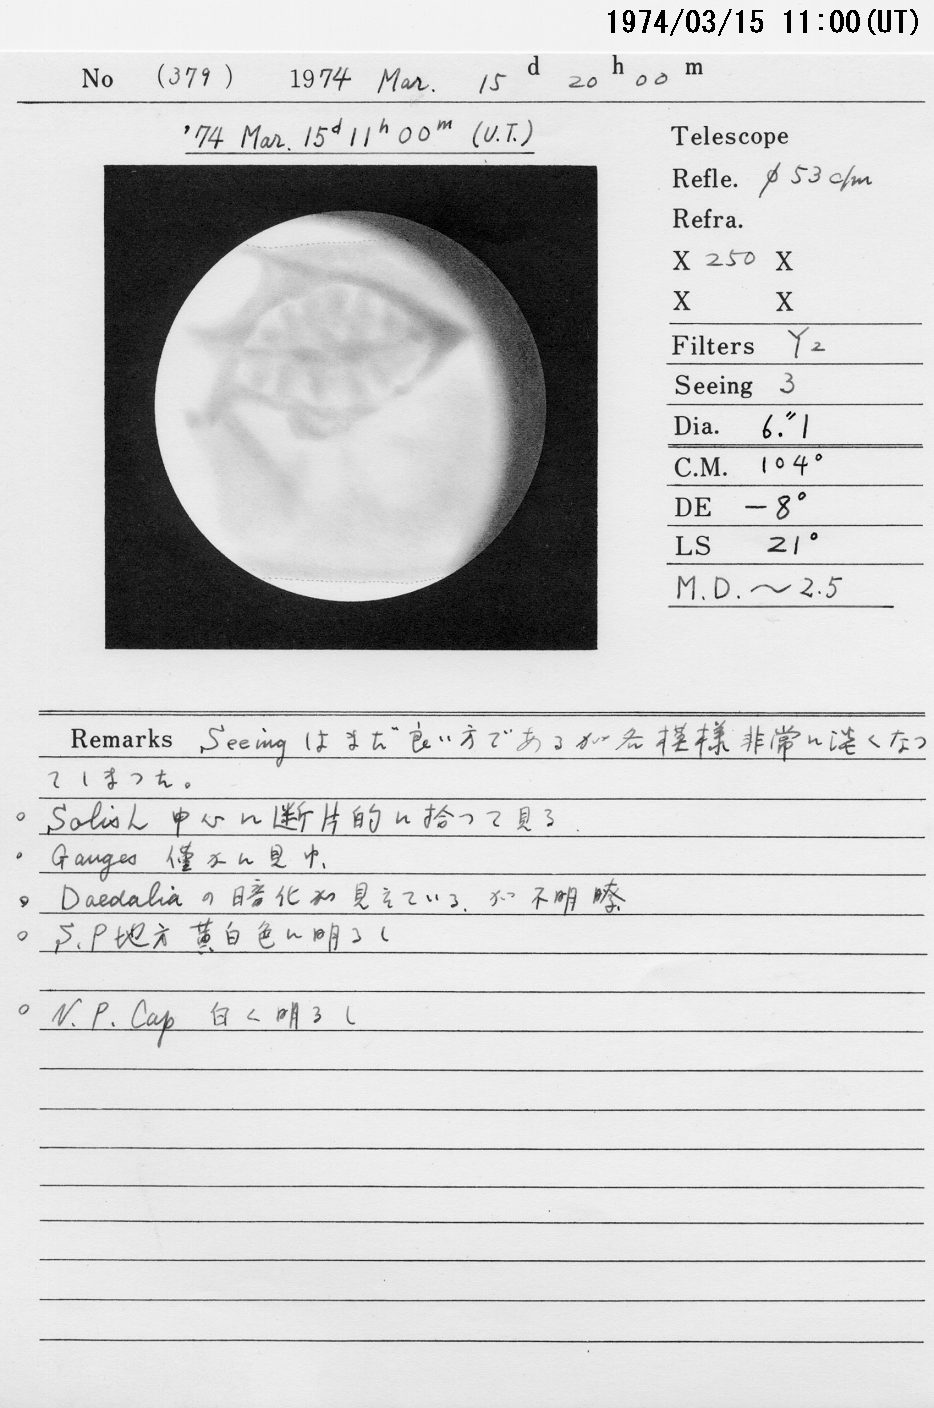 1974/03/15 11:00(UT)
No (379) 1974 Mar. 15 d 20 h 00 m
'74 Mar. 15d 11h 00m (U.T.)
Telescope
Refle. φ 53 c/m
Refra.
X 250 X
X X
Filters Y2
Seeing 3
Dia. 6.″1
C.M. 104°
DE −8°
LS 21°
M.D. 〜 2.5
Remarks Seeingはまだ良い方であるが各模様非常に淡くなっ
てしまった。
○ Solis L 中心に断片的に拾って見る
○ Ganges 僅かに見ゆ
○ Daedaliaの暗化が見えている.が不明瞭
○ S.P地方 黄白色に明るし
○ N.P.Cap 白く明るし